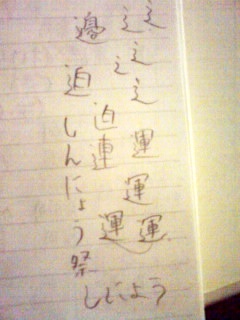 辶辶辶運運運
辶辶
迫連運
邊
迫しんにょう祭
しによう